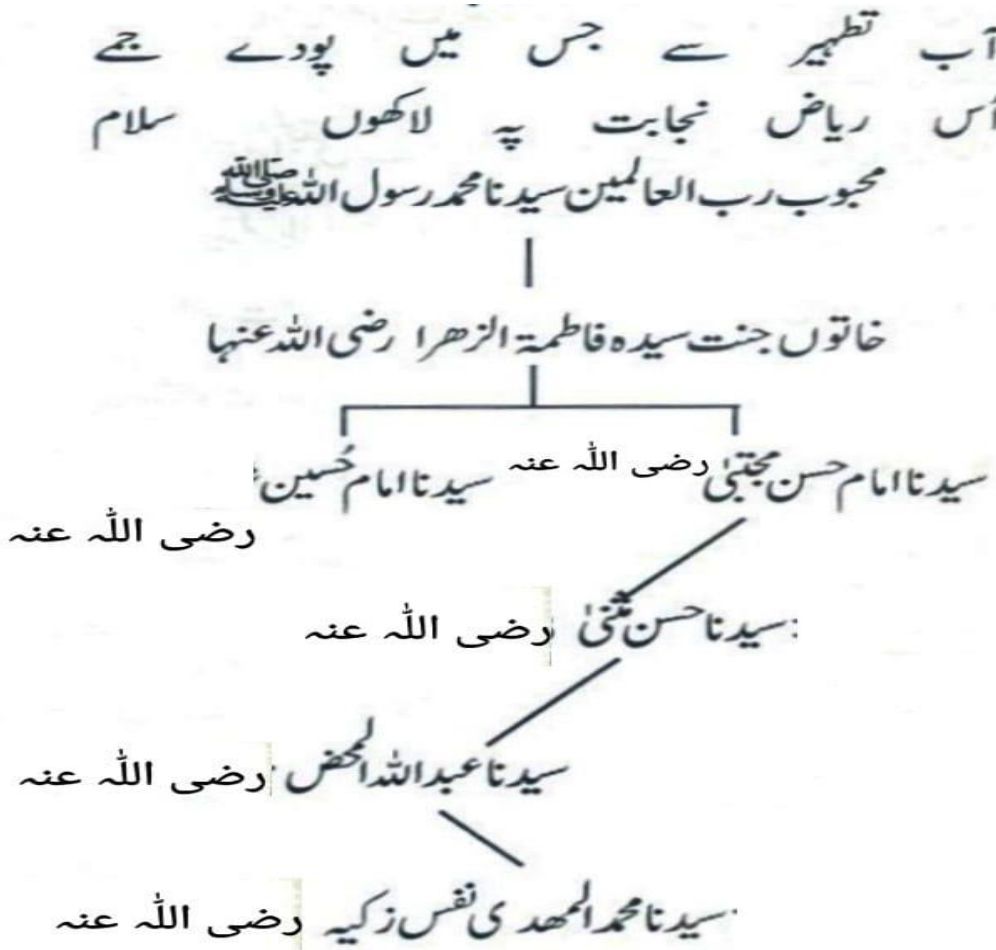 آب تطہیر سے جس میں پودے جمے
اُس ریاض نجابت پہ لاکھوں سلام
محبوب رب العالمین سیدنا محمد رسول اللہ ﷺ
خاتوں جنت سیدہ فاطمۃ الزھرا رضی اللہ عنہا
سیدنا امام حسن مجتبیٰ رضی اللہ عنہ
سیدنا امام حُسین رضی اللہ عنہ
:سیدنا حسن مثنیٰ رضی اللہ عنہ
سیدنا عبداللہ المحض رضی اللہ عنہ
سیدنا محمد المھدی نفس زکیہ رضی اللہ عنہ